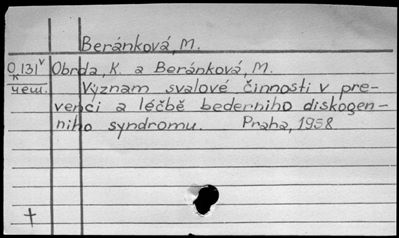 Beránková, M.
O 131 v Obrda, K. a Beránková, M.
к
чеш. Význam svalové činnosti v pre-
venci a léčbě bederního diskogen-
ního syndromu. Praha, 1958